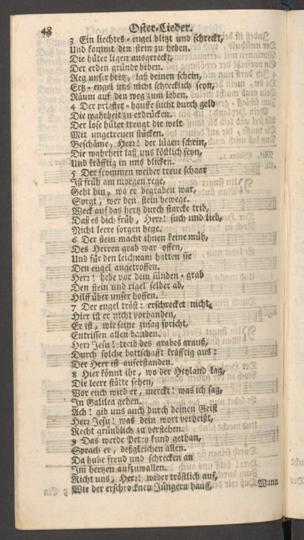 48 Oster-Lieder.
3 Ein liechtes-engel blitzt und schreckt,
Und kommt den stein zu heben.
Die hüter ligen ausgereckt,
Der erden gründe beben.
Reg unser hertz, laß deinen schein,
Ertz-engel uns nicht schrecklich seyn,
Räum auf den weg zum leben.
4 Der priester-hauffe sucht durch geld
Die wahrheit zu erdrücken.
Der lose hüter treugt die welt
Mit ungetreuen stücken.
Beschäme, Herr! der lügen schein,
Die wahrheit laß uns köstlich seyn,
Und kräfftig in uns blicken.
5 Der frommen weiber treue schaar
Ist früh am morgen rege,
Geht hin, wo er begraben war,
Sorgt, wer den stein bewege.
Weck auf das hertz durch starcke trib,
Daß es dich früh, Herr! such und lieb,
Nicht leere sorgen hege.
6 Der stein macht ihnen keine müh,
Des Herren grab war offen,
Und für den leichnam hatten sie
Den engel angetroffen.
Herr! hebe vor dem sünden-grab
Den stein und rigel selber ab,
Hilff über unser hoffen.
7 Der engel tröst: erschrecket nicht,
Hier ist er nicht vorhanden,
Er ist, wie seine zusag spricht,
Entrissen allen banden.
Herr Jesu! treib des grabes grauß,
Durch solche bottschafft kräfftig aus:
Der Herr ist auferstanden.
8 Hier könnt ihr, wo der Heyland lag,
Die leere stätte sehen,
Vor euch wird er, merckt! was ich sag,
In Galilea gehen.
Ach! gib uns auch durch deinen Geist
Herr Jesu! was dein wort verheißt,
Recht gründlich zu verstehen.
9 Das werde Petro kund gethan,
Sprach er, deßgleichen allen.
Da hube freud und schrecken an
Im hertzen aufzuwallen.
Richt uns, Herr! wider tröstlich auf,
Wie der erschrocknen Jüngern hauff,
Wann